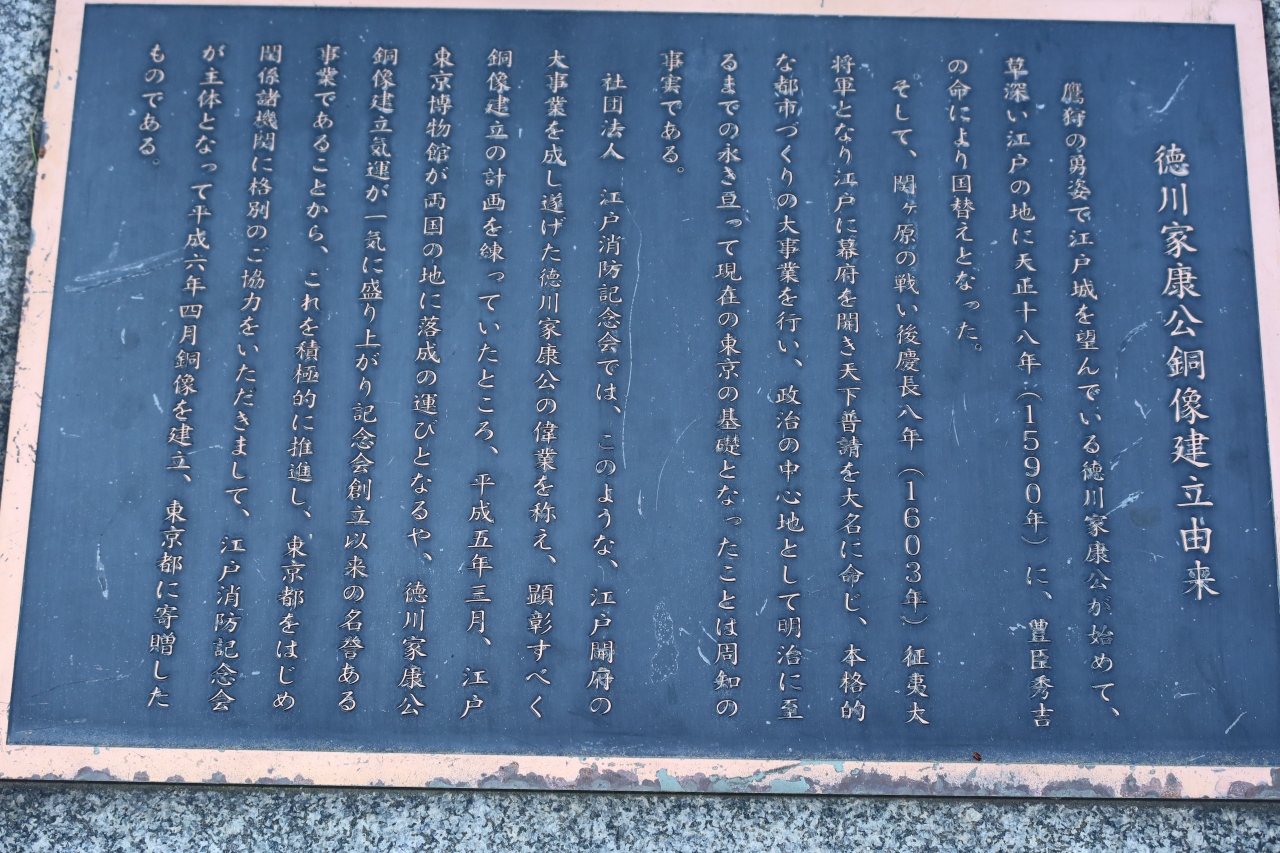 徳川家康公銅像建立由来
鷹狩の勇姿で江戸城を望んでいる徳川家康公が始めて、
草深い江戸の地に天正十八年（1590年）に、豊臣秀吉
の命により国替えとなった。
そして、関ヶ原の戦い後慶長八年（1603年）征夷大
将軍となり江戸に幕府を開き天下普請を大名に命じ、本格的
な都市づくりの大事業を行い、政治の中心地として明治に至
るまでの永き亘って現在の東京の基礎となったことは周知の
事実である。
社団法人　江戸消防記念会では、このような、江戸開府の
大事業を成し遂げた徳川家康公の偉業を称え、顕彰すべく
銅像建立の計画を練っていたところ、平成五年三月、江戸
東京博物館が両国の地に落成の運びとなるや、徳川家康公
銅像建立気運が一気に盛り上がり記念会創立以来の名誉ある
事業であることから、これを積極的に推進し、東京都をはじめ
関係諸機関に格別のご協力をいただきまして、江戸消防記念会
が主体となって平成六年四月銅像を建立、東京都に寄贈した
ものである。